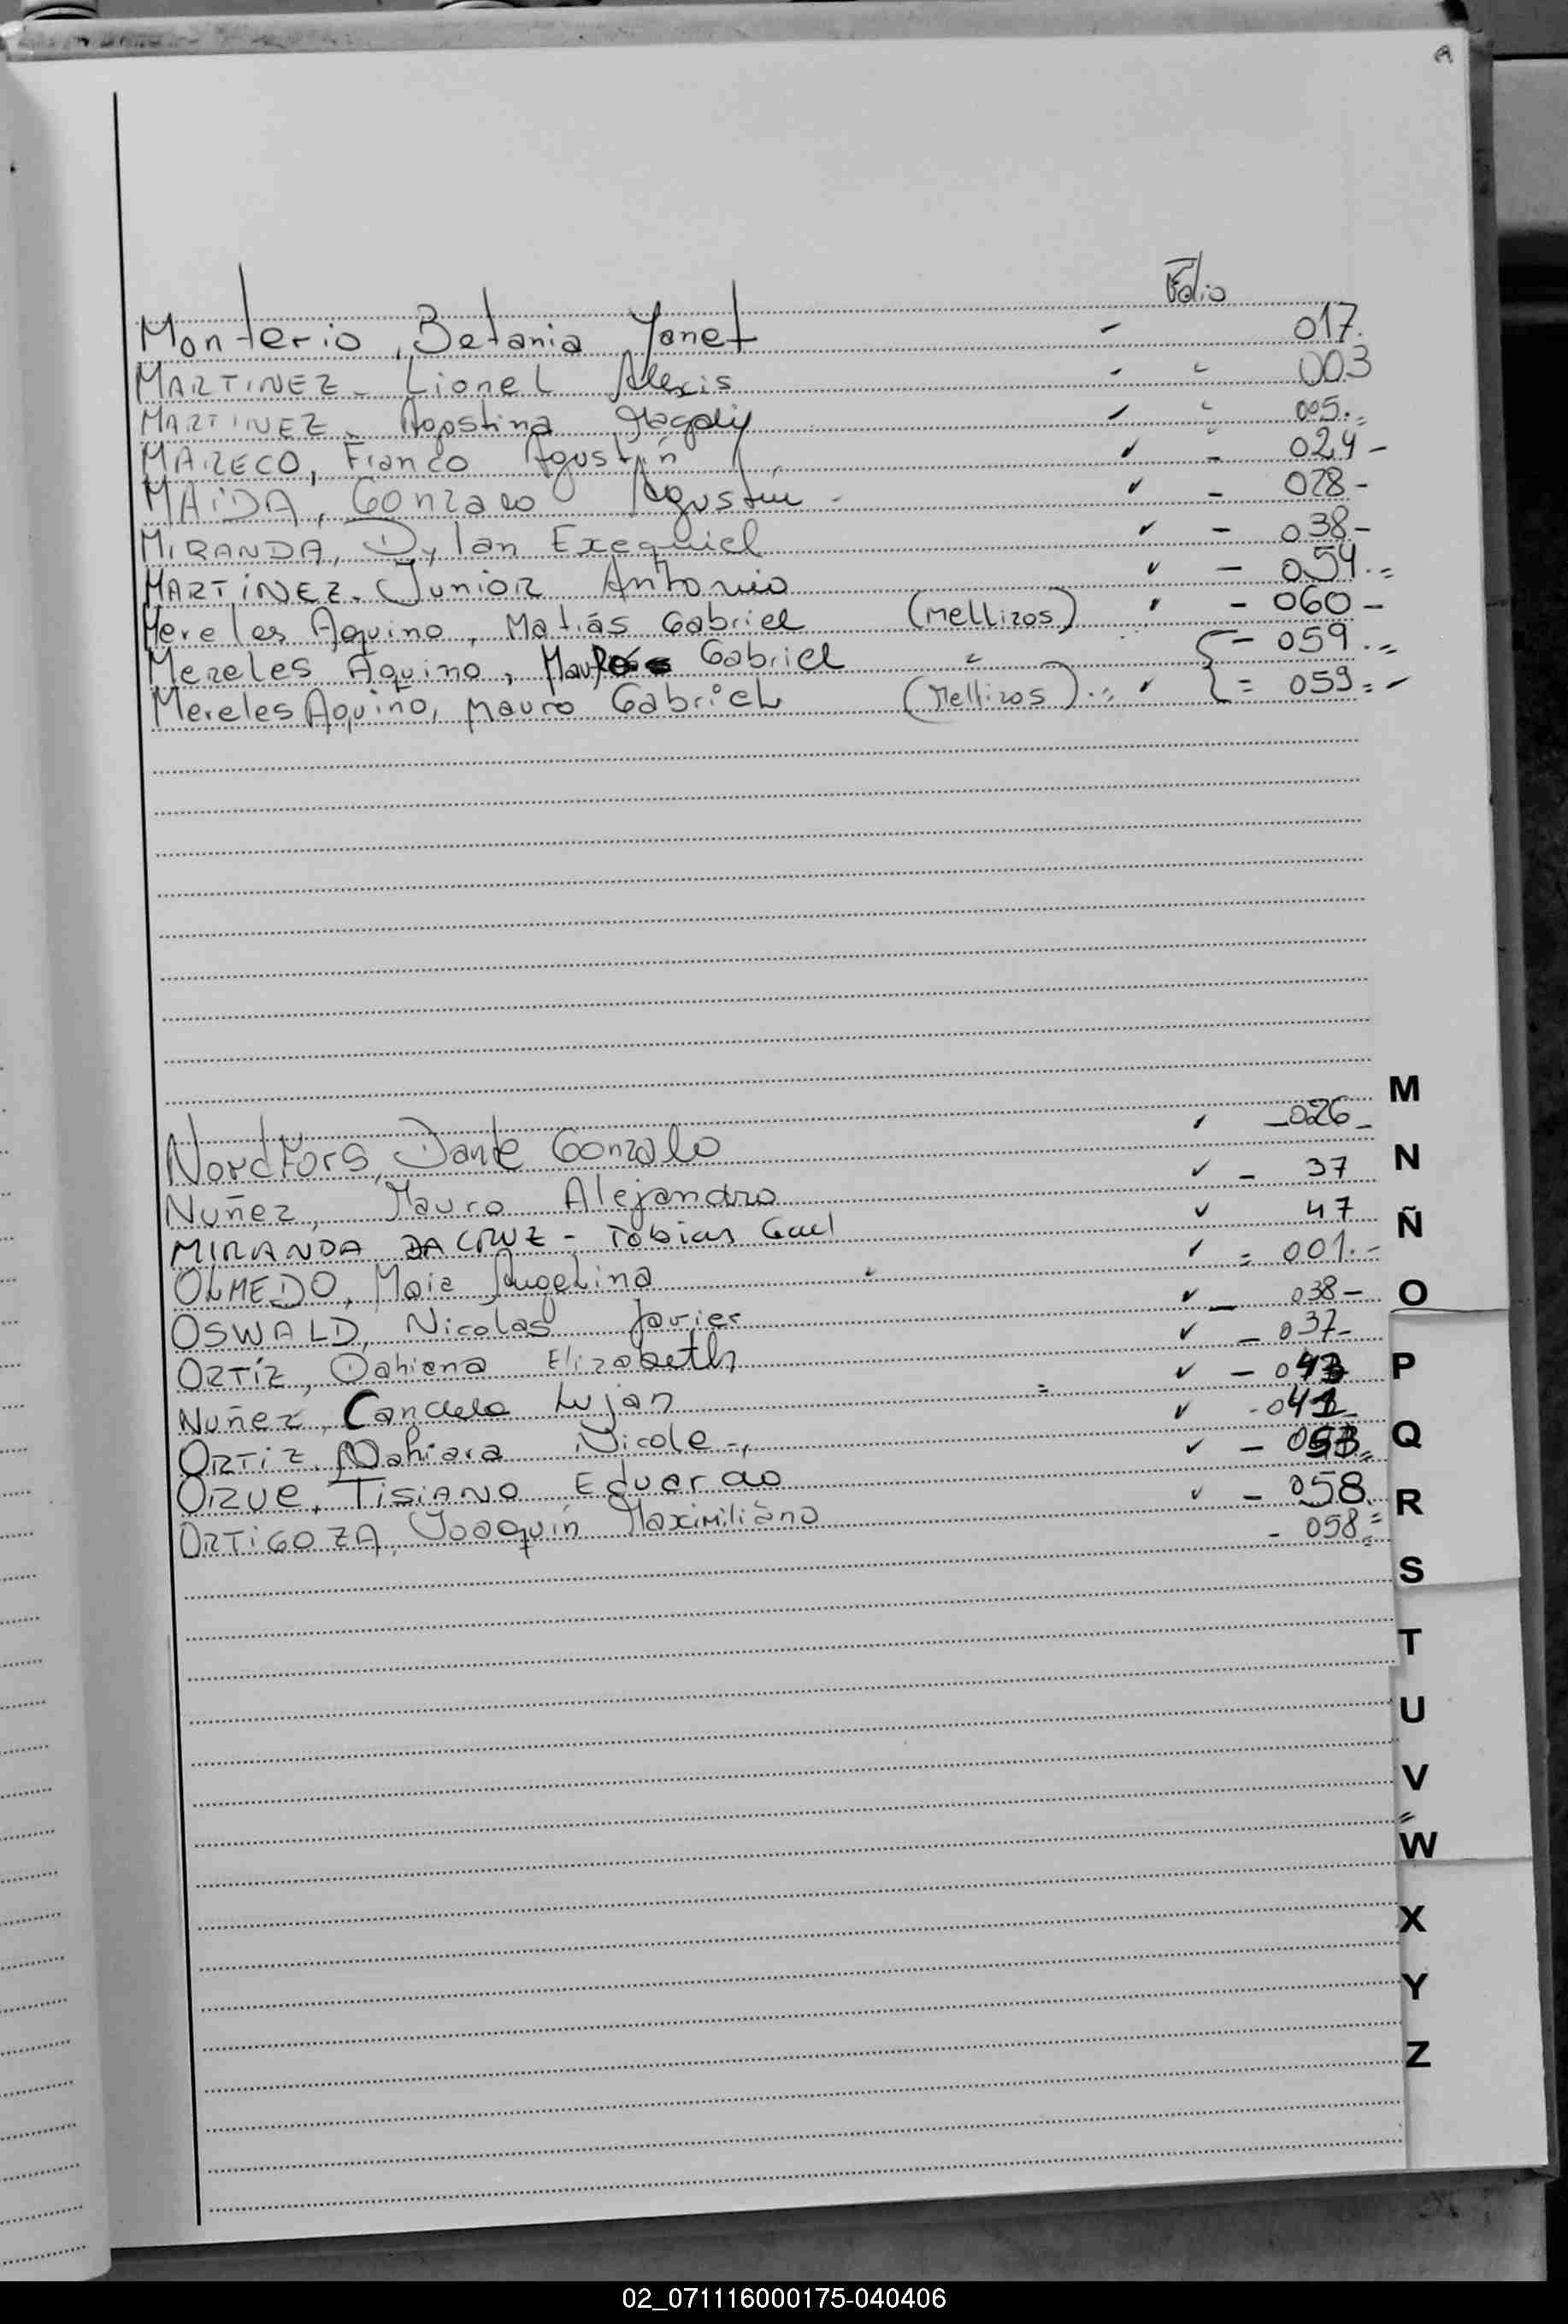 Folio
Monterio, Betania Yanet - 017.
MARTINEZ - Lionel Alexis - " 003
MARTINEZ - Agostina Magaly - " 005.=
MARECO, Franco Agustín ✓ - 024 -
MAIDA, Gonzalo Agustín - ✓ - 028 -
MIRANDA, Dylan Exequiel ✓ - 038 -
MARTINEZ - Junior Antonio ✓ - 054.=
Mereles Aquino, Matiás Gabriel (Mellizos) ✓ - 060 -
Mereles Aquino, Gabriel " - 059.=
Mereles Aquino, Mauro Gabriel (Mellizos).= ✓ = 059=-
M
Nordfors, Dante Gonzalo ✓ - 026 -
N
Nuñez, Mauro Alejandro ✓ - 37
MIRANDA DA CRUZ - Tobias Gael ✓ 47
Ñ
OLMEDO, Maia Angelina ✓ = 001.=
OSWALD, Nicolas Javier ✓ - 038 -
O
ORTÍZ, Dahiana Elizabeth ✓ - 037 -
Nuñez, Candela Lujan ✓ - 043
P
ORTIZ, Nahiara Nicole -, ✓ - 042
ORZUE, TISIANO Eduardo ✓ - 053=
Q
ORTIGOZA, Joaquín Maximiliano ✓ - 058.
- 058.=
R
S
T
U
V
W
X
Y
Z
02_071116000175-040406